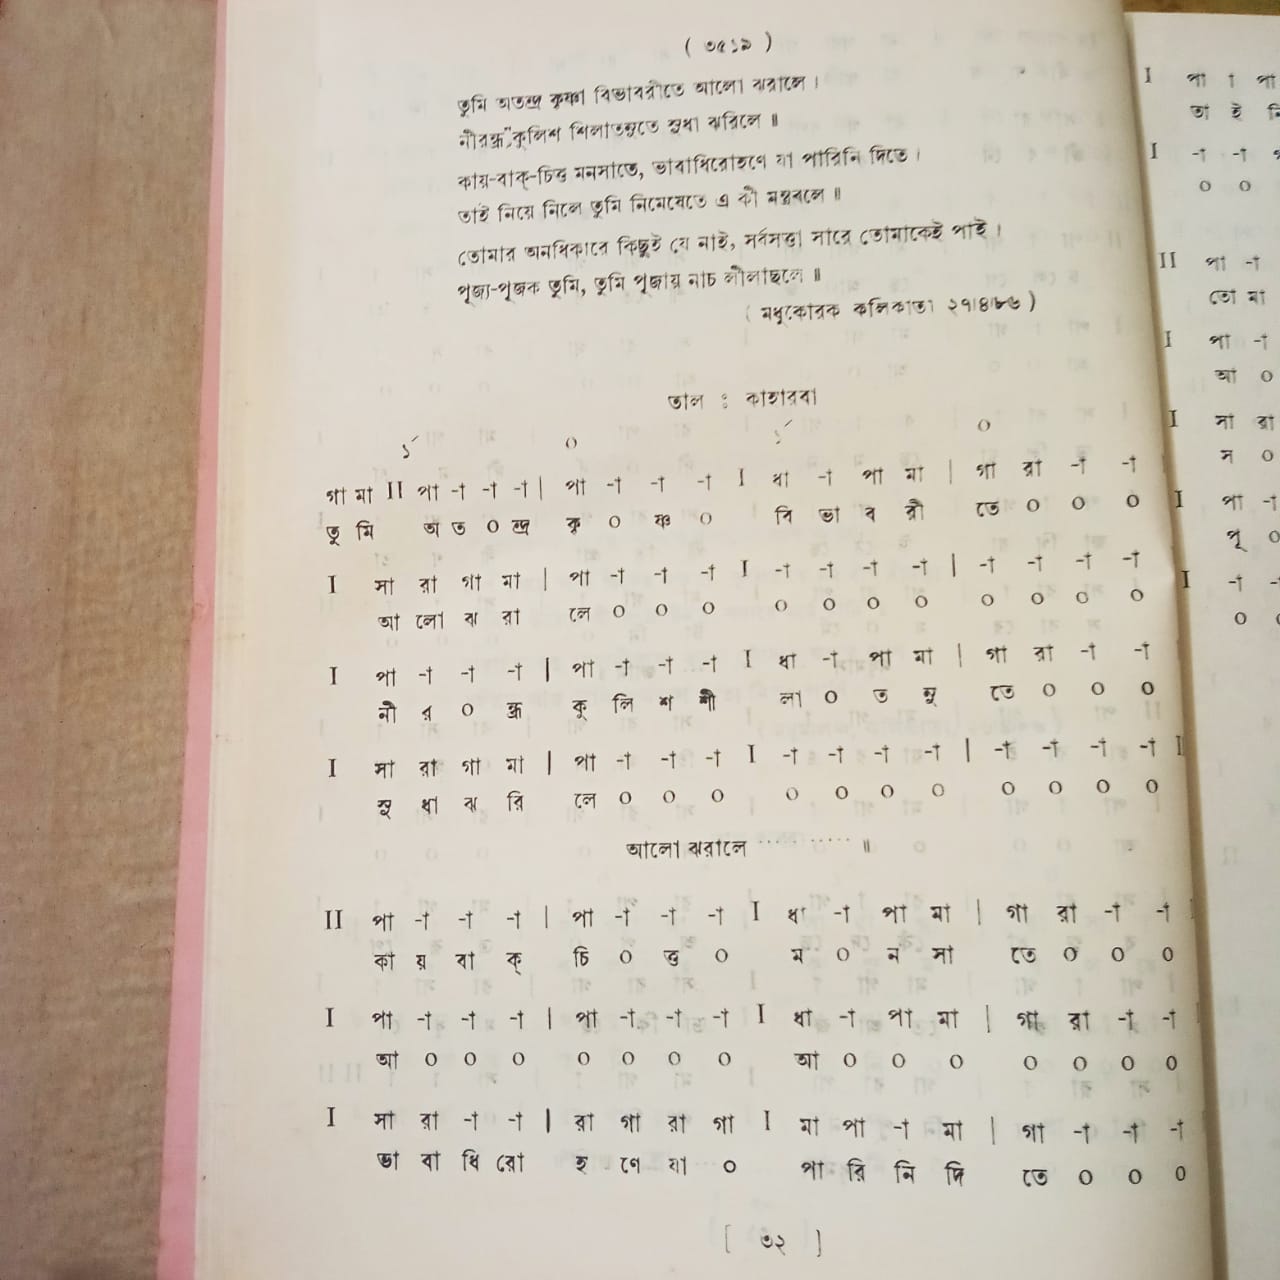 ( ৩৫১৯ )
তুমি অতন্দ্র কৃষ্ণা বিভাবরীতে আলো ঝরালে ।
নীরন্ধ্র কুলিশ শিলাতনুতে সুধা ঝরিলে ॥
কায়-বাক্-চিত্ত মনসাতে, ভাবাধিরোহণে যা পারিনি দিতে ।
তাই নিয়ে নিলে তুমি নিমেষেতে এ কী মন্ত্রবলে ॥
তোমার অনধিকারে কিছুই যে নাই, সর্বসত্তা মাঝে তোমাকেই পাই ।
পূজ্য-পূজক তুমি, তুমি পূজায় নাচ লীলাছলে ॥
( মধুকোরক কলিকাতা ২৭।৪।৮৬ )
তাল : কাহারবা
১´ ০ ১´ ০
গা মা II পা -া -া -া | পা -া -া -া I ধা -া পা মা | গা রা -া -া
তু মি অ ত ০ ন্দ্র কৃ ০ ষ্ণ ০ বি ভা ব রী তে ০ ০ ০
I সা রা গা মা | পা -া -া -া I -া -া -া -া | -া -া -া -া
আ লো ঝ রা লে ০ ০ ০ ০ ০ ০ ০ ০ ০ ০ ০
I পা -া -া -া | পা -া -া -া I ধা -া পা মা | গা রা -া -া
নী র ০ ন্ধ্র কু লি শ শী লা ০ ত নু তে ০ ০ ০
I সা রা গা মা | পা -া -া -া I -া -া -া -া | -া -া -া -া I
সু ধা ঝ রি লে ০ ০ ০ ০ ০ ০ ০ ০ ০ ০ ০
আলো ঝরালে ··········· ॥
II পা -া -া -া | পা -া -া -া I ধা -া পা মা | গা রা -া -া
কা য় বা ক্ চি ০ ত্ত ০ ম ০ ন সা তে ০ ০ ০
I পা -া -া -া | পা -া -া -া I ধা -া পা মা | গা রা -া -া
আ ০ ০ ০ ০ ০ ০ ০ আ ০ ০ ০ ০ ০ ০ ০
I সা রা -া -া | রা গা রা গা I মা পা -া মা | গা -া -া -া
ভা বা ধি রো হ ণে যা ০ পা রি নি দি তে ০ ০ ০
[ ৩২ ]
I পা া পা
তা ই নি
I -া -া
০ ০
II পা -া
তো মা
I পা -া
আ ০
I সা রা
স ০
I পা -া
পূ ০
I -া -া
০